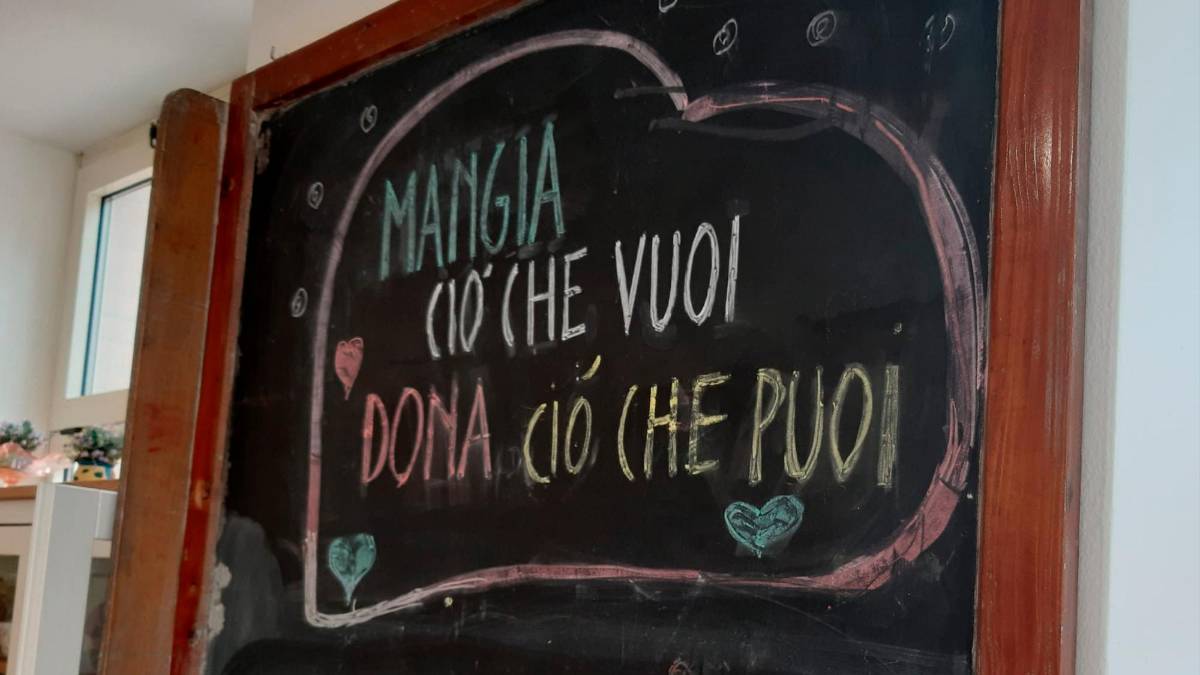 MANGIA
CIÓ CHE VUOI
DONA CIÓ CHE PUOI